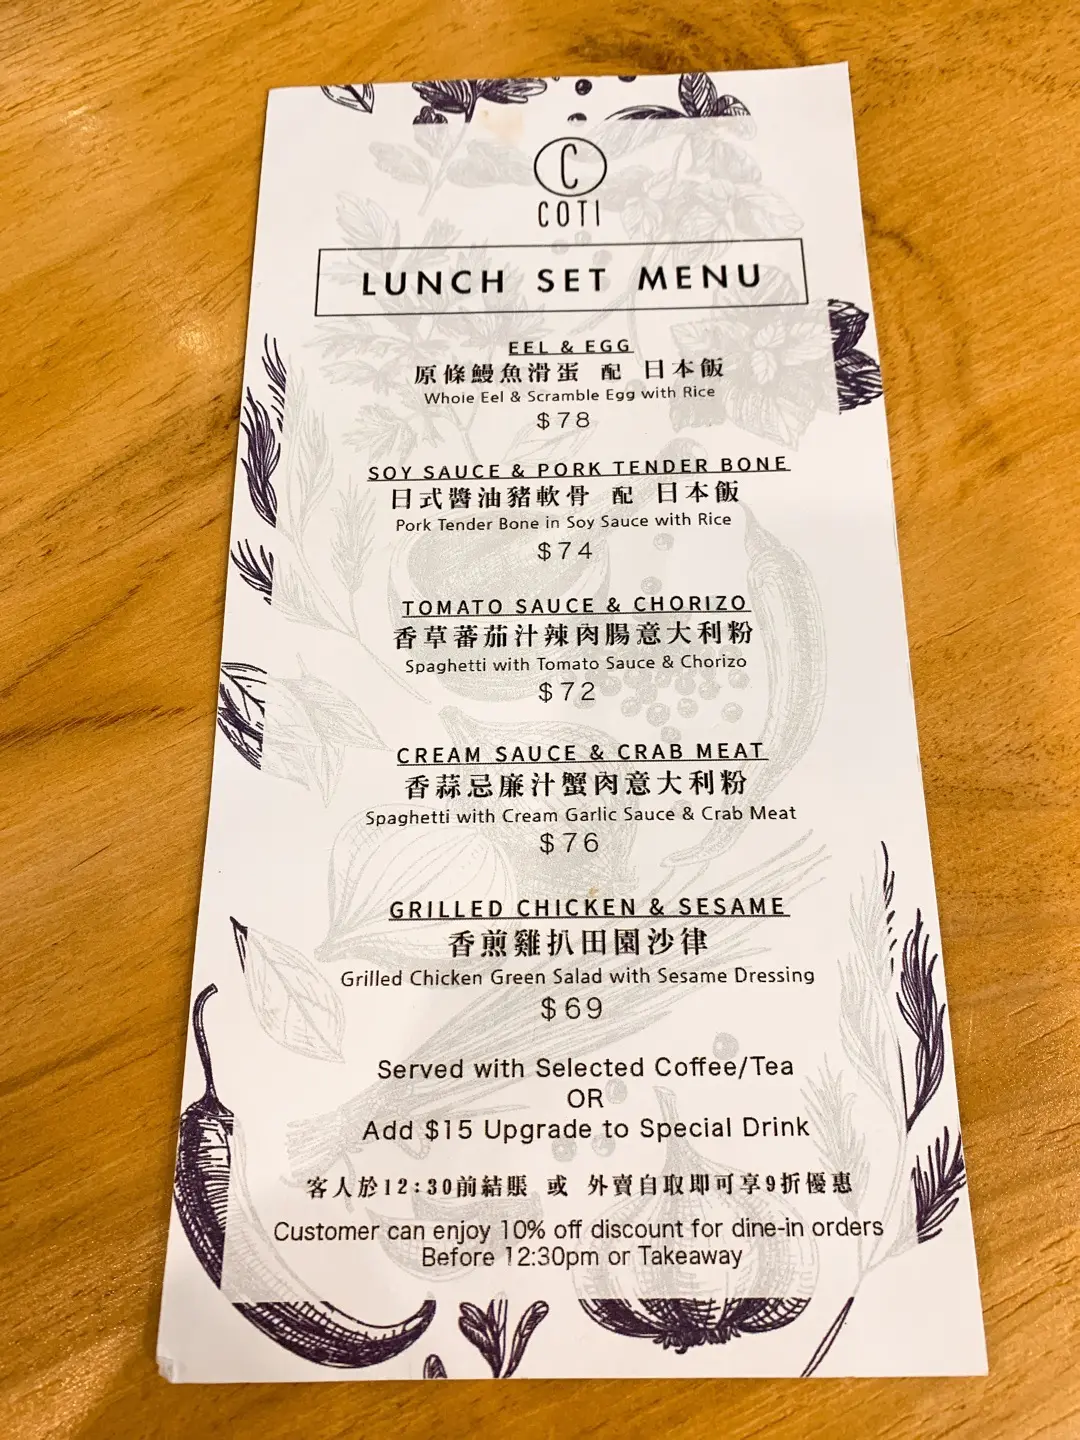 C
COTI
LUNCH SET MENU
EEL & EGG
原條鰻魚滑蛋 配 日本飯
Whole Eel & Scramble Egg with Rice
$78
SOY SAUCE & PORK TENDER BONE
日式醬油豬軟骨 配 日本飯
Pork Tender Bone in Soy Sauce with Rice
$74
TOMATO SAUCE & CHORIZO
香草蕃茄汁辣肉腸意大利粉
Spaghetti with Tomato Sauce & Chorizo
$72
CREAM SAUCE & CRAB MEAT
香蒜忌廉汁蟹肉意大利粉
Spaghetti with Cream Garlic Sauce & Crab Meat
$76
GRILLED CHICKEN & SESAME
香煎雞扒田園沙律
Grilled Chicken Green Salad with Sesame Dressing
$69
Served with Selected Coffee/Tea
OR
Add $15 Upgrade to Special Drink
客人於12:30前結賬 或 外賣自取即可享9折優惠
Customer can enjoy 10% off discount for dine-in orders
Before 12:30pm or Takeaway